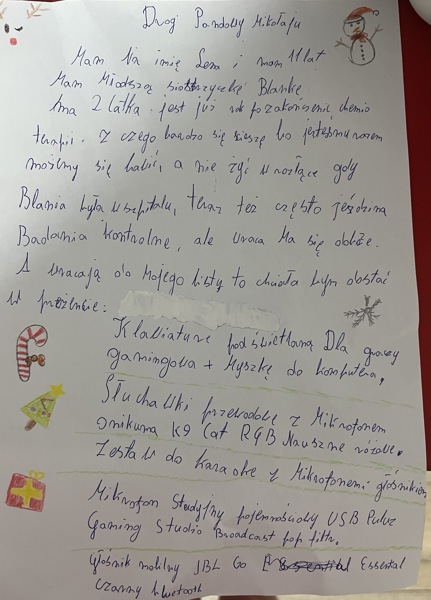 Drogi Pandowy Mikołaju
Mam Na imię Lena i mam 11 lat
Mam Młodszą siostrzyczkę Blankę
Ma 2 latka. jest już rok po zakończeniu chemio
terapii. z czego bardzo się cieszę bo jesteśmy razem
możemy się bawić, a nie żyć w rozłące gdy
Blania była w szpitalu, teraz też często jeździ na
Badania kontrolne, ale wraca Ma się dobrze.
A wracają do Mojego listy to chciała bym dostać
w prezencie:
Klawiature podświetlaną Dla graczy
gamingowa + Myszkę do komputera,
Słuchawki przewodowe z Mikrofonem
onikuma K9 Cat RGB Nauszne różowe.
Zestaw do karaoke z Mikrofonem i głośnikiem
Mikrofon Studyjny pojemnościowy USB Puluz
Gaming Studio Broadcast pop filtr.
Głośnik mobilny JBL Go Essential
czarny bluetooth